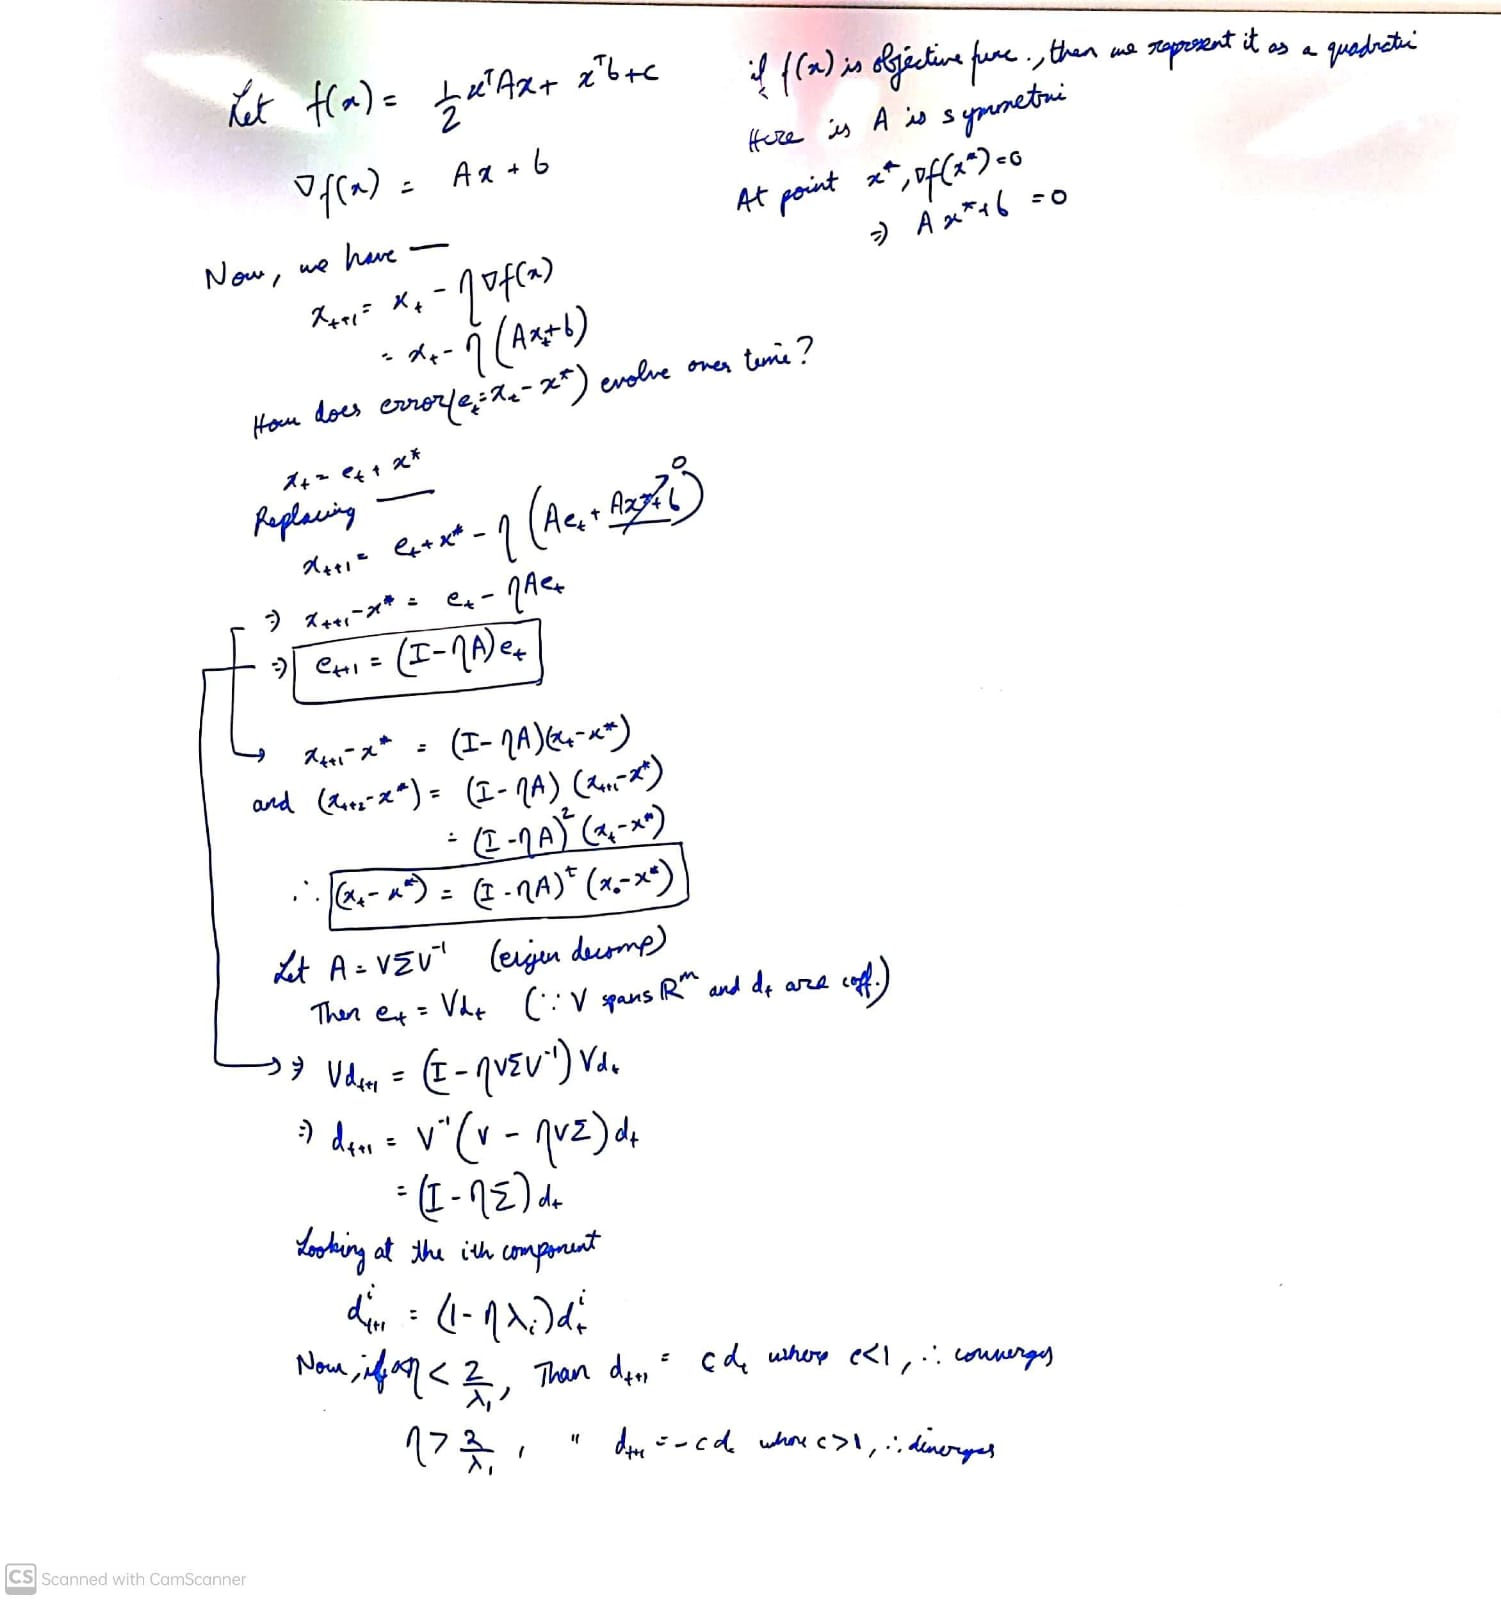 Let f(x) = 1/2 xᵀAx + xᵀb + c
if f(x) is objective func., then we represent it as a quadratic
Here is A is symmetric
∇f(x) = Ax + b
At point x*, ∇f(x*) = 0
⇒ Ax* + b = 0
Now, we have —
xₜ₊₁ = xₜ - η∇f(x)
= xₜ - η(Axₜ + b)
How does error(eₜ = xₜ - x*) evolve over time?
xₜ = eₜ + x*
Replacing
xₜ₊₁ = eₜ + x* - η(Aeₜ + Ax* + b) 0
⇒ xₜ₊₁ - x* = eₜ - ηAeₜ
⇒ eₜ₊₁ = (I - ηA)eₜ
xₜ₊₁ - x* = (I - ηA)(xₜ - x*)
and (xₜ₊₂ - x*) = (I - ηA)(xₜ₊₁ - x*)
= (I - ηA)²(xₜ - x*)
∴ (xₜ - x*) = (I - ηA)ᵗ(x₀ - x*)
Let A = VΣV⁻¹ (eigen decomp)
Then eₜ = Vdₜ (∵ V spans ℝᵐ and dₜ are coff.)
⇒ Vdₜ₊₁ = (I - ηVΣV⁻¹)Vdₜ
⇒ dₜ₊₁ = V⁻¹(V - ηVΣ)dₜ
= (I - ηΣ)dₜ
Looking at the ith component
dⁱₜ₊₁ = (1 - ηλᵢ)dⁱₜ
Now, if η < 2/λ₁, Than dₜ₊₁ = cdₜ where c<1, ∴ converges
η > 2/λ₁, " dₜ₊₁ = -cdₜ where c>1, ∴ diverges
CS Scanned with CamScanner